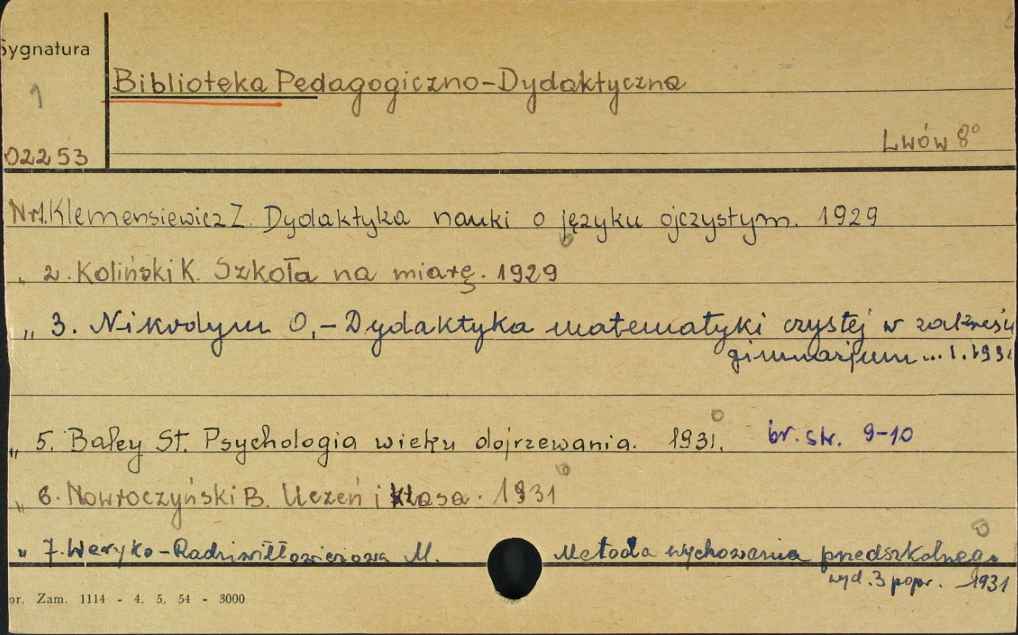 Sygnatura
1
Biblioteka Pedagogiczno-Dydaktyczna
Lwów 8°
02253
Nr1. Klemensiewicz Z. Dydaktyka nauki o języku ojczystym. 1929
„ 2. Koliński K. Szkoła na miarę. 1929
„ 3. Nikodym O,- Dydaktyka matematyki czystej w zakresie
gimnazjum ... I. 1931
„ 5. Baley St. Psychologia wieku dojrzewania. 1931. br. str. 9-10
„ 6. Nawroczyński B. Uczeń i klasa. 1931
„ 7. Weryho-Radziwiłłowiczowa M. Metoda wychowania przedszkolnego
wyd. 3 popr. 1931
or. Zam. 1114 - 4. 5. 54 - 3000